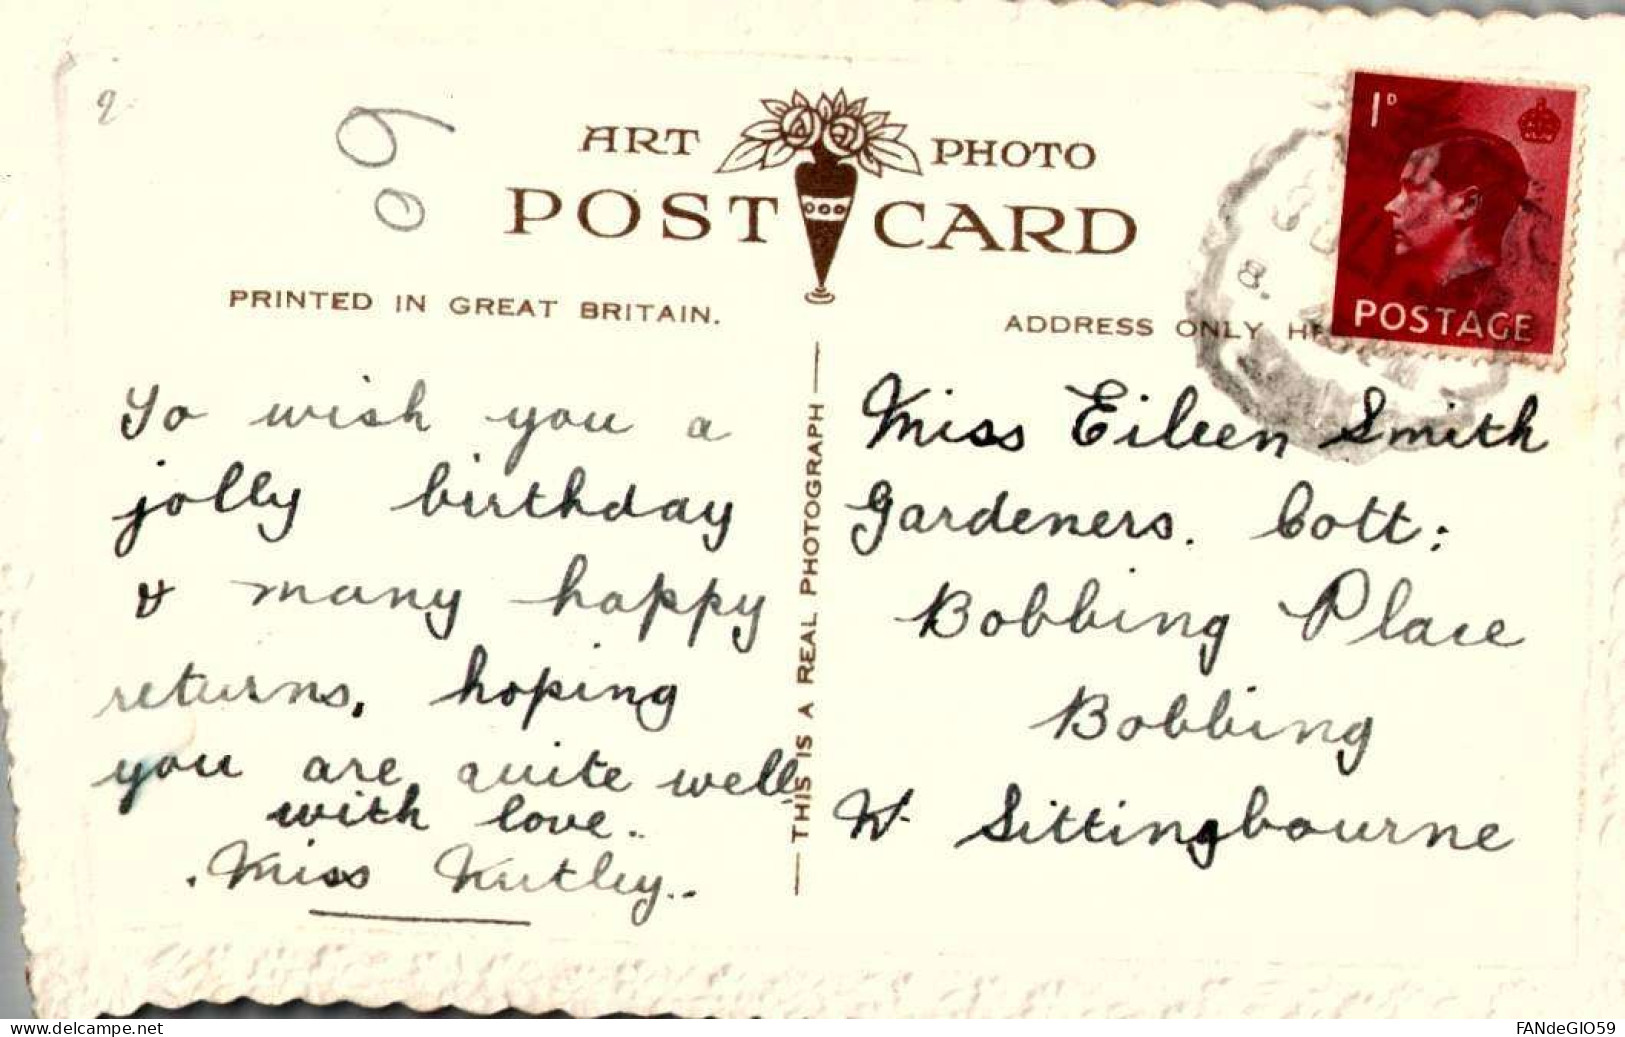 2
69
ART PHOTO
POST CARD
PRINTED IN GREAT BRITAIN.
ADDRESS ONLY
1D
POSTAGE
8.
To wish you a
jolly birthday
& many happy
returns, hoping
you are quite well
with love..
Miss
THIS IS A REAL PHOTOGRAPH
Miss Eileen Smith
Gardeners. Cott:
Bobbing Place
Bobbing
Nr Sittingbourne
www.delcampe.net
FANdeGIO59